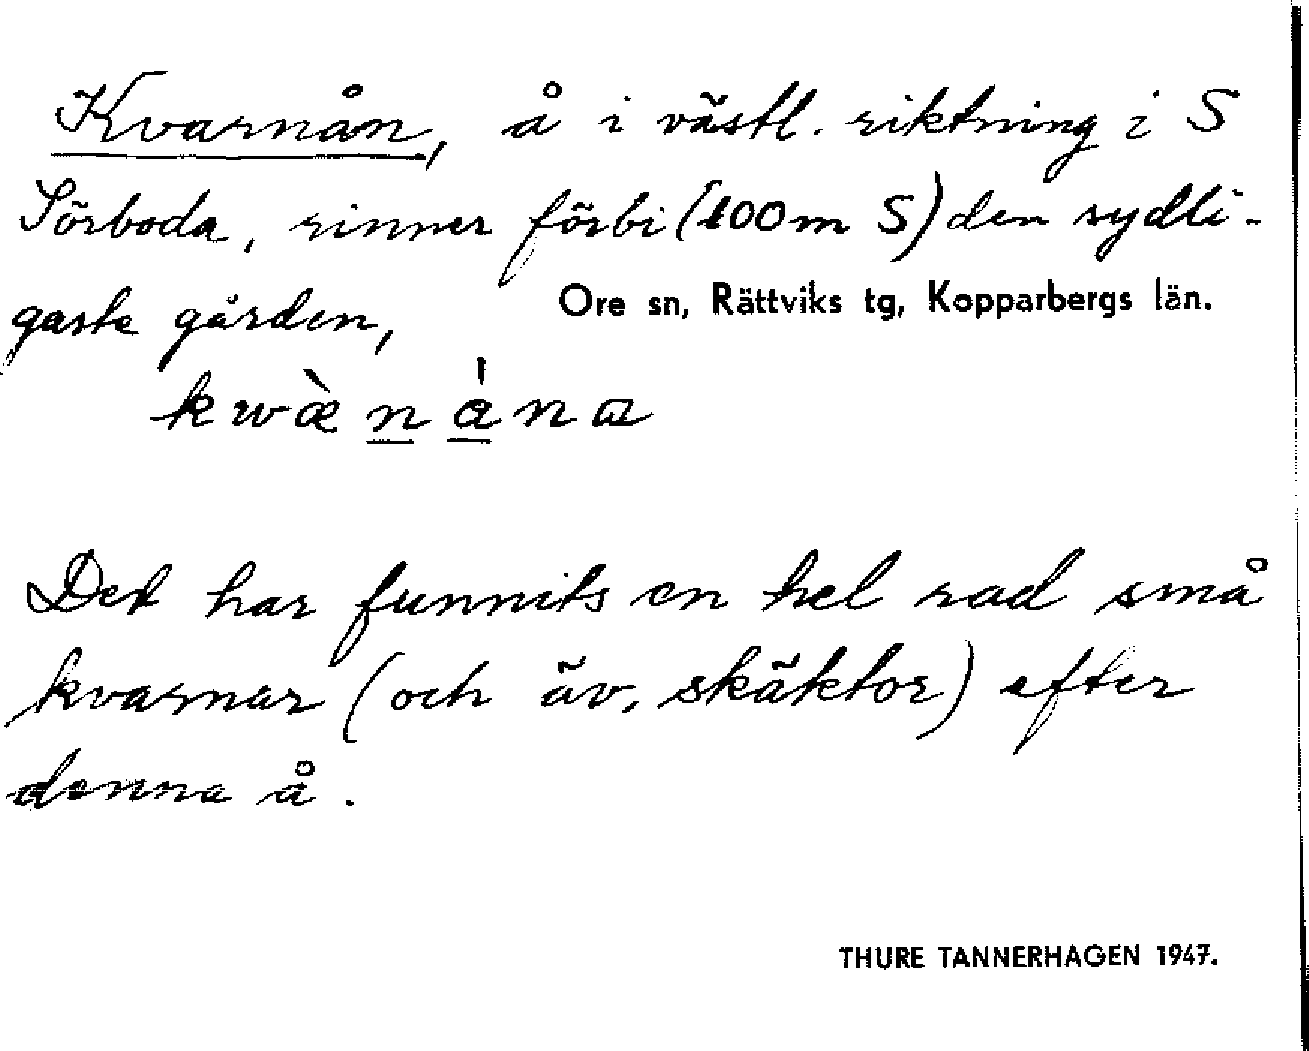 Kvarnån, å i västl. riktning i S
Sörboda, rinner förbi (100m S) den sydli-
gaste gården,
Ore sn, Rättviks tg, Kopparbergs län.
kwæ̀nánɑ
Det har funnits en hel rad små
kvarnar (och äv. skäktor) efter
denna å.
THURE TANNERHAGEN 1947.